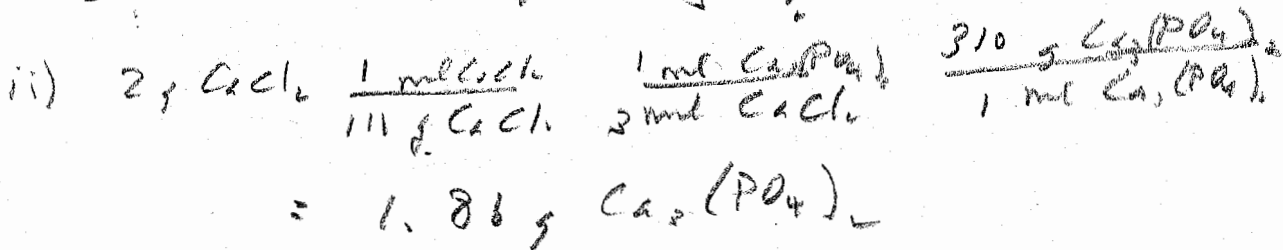 ii) 2 g CaCl₂ 1 mol CaCl₂ / 111 g CaCl₂ 1 mol Ca₃(PO₄)₂ / 3 mol CaCl₂ 310 g Ca₃(PO₄)₂ / 1 mol Ca₃(PO₄)₂
= 1.86 g Ca₃(PO₄)₂